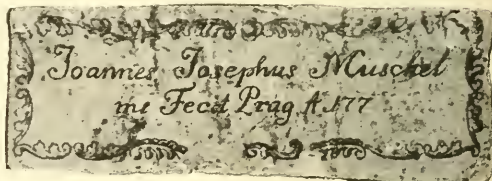 Joannes Josephus Muschel
me Fecit Prag A 177